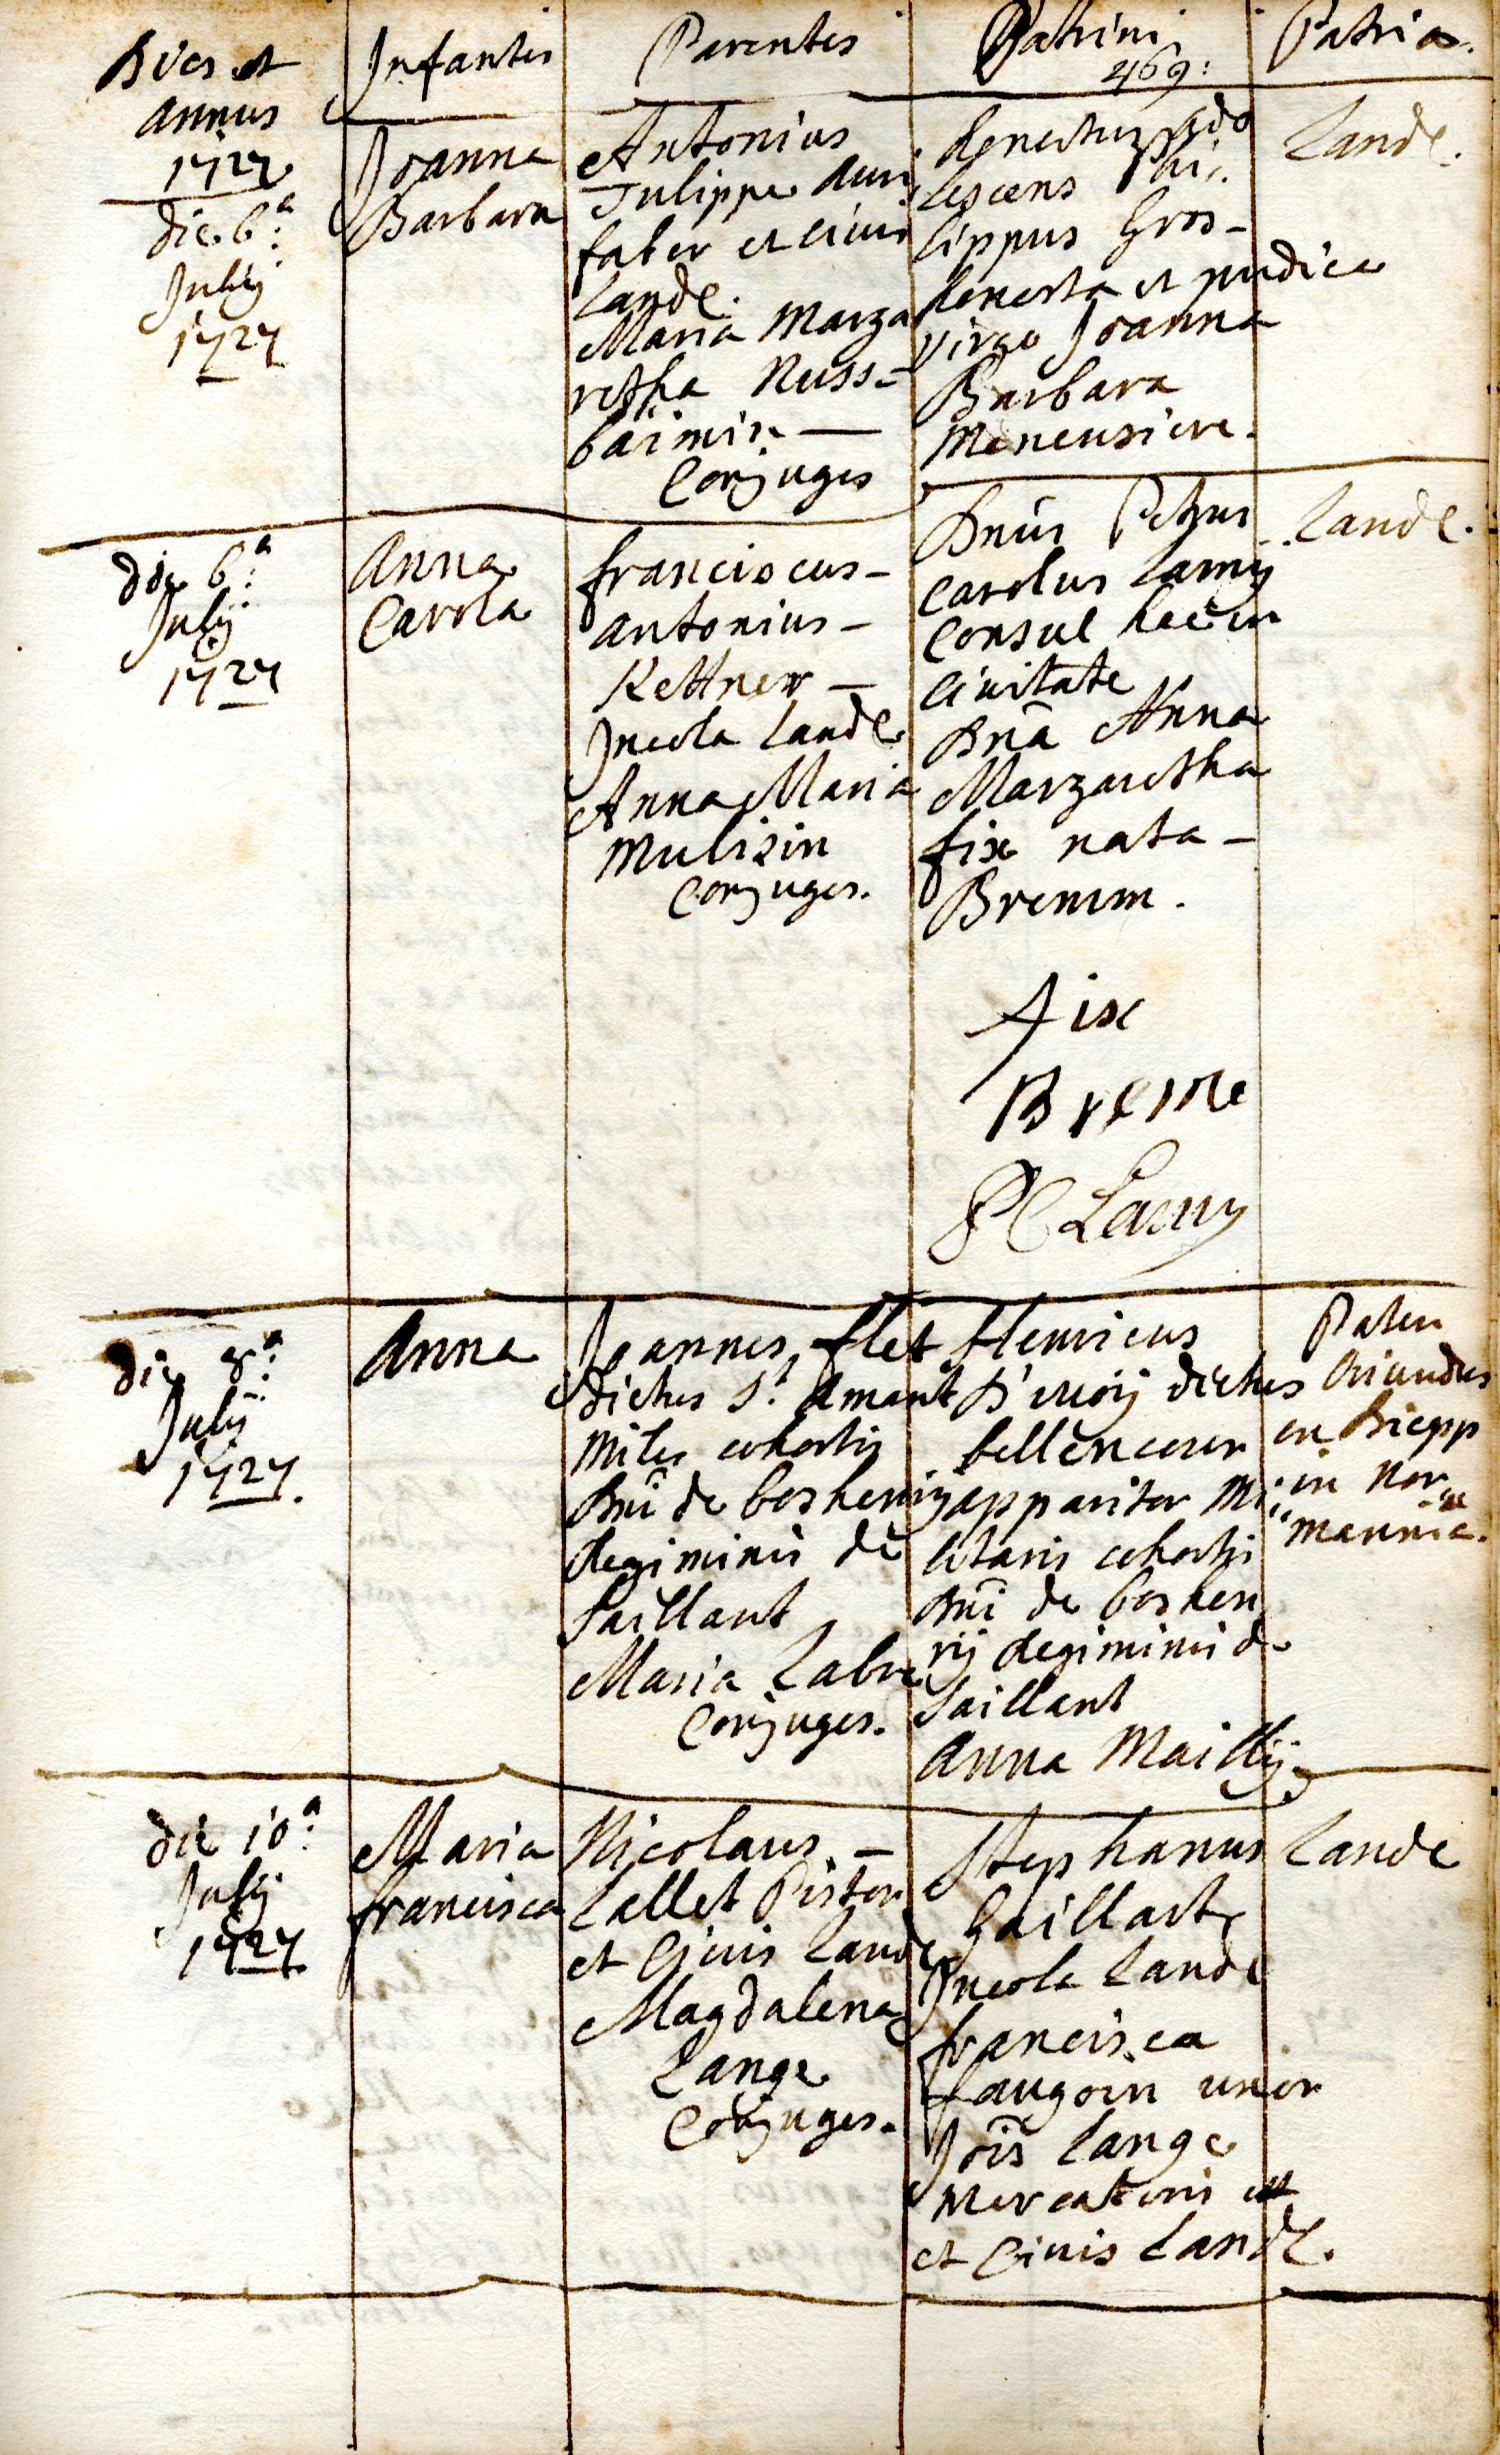 Dies et
annus
1727
Infantes
Parentes
Patrini
469:
Patria.
die 6a:
July
1727
Joanna
Barbara
Antonius
Tulippe Auri
faber et civis
Land.
Maria Marga
retha Nuss-
baimin
Conjuges
honestus ado
lescens Phi:
lippus Gros-
honesta et pudica
virgo Joanna
Barbara
Land.
die 6a:
July
1727
Anna
Carola
franciscus-
antonius-
Kettner -
Incola Land.
Anna Maria
Mulisin
Conjuges.
Dnus Petrus
carolus Lamy
Consul hac in
Civitate
Dna Anna
Margaretha
fix nata -
Bremm.
fix
Breme
PC Lamy
Land.
die 8a:
July
1727.
Anna
Joannes flet
dictus St. Amant
Miles cohortis
Dni de boshenrij
Regiminis de
Saillant
Maria Labre
Conjuges.
Henricus
dictus
bellencour
apparitor Mi:
litaris cohortis
Dni de boshen
rij Regiminis de
Saillant
Anna Mailly.
Pater
Oriundus
en Diepp
in Nor
mannia.
die 10a:
July
1727.
Maria
francisca
Nicolaus -
Lallet Pistor
et Civis Land.
Magdalena
Lange
Conjuges.
Stephanus
Gaillart
Incola Land
francisca
faugoin uxor
Jois Lange
Mercatoris et
et Civis Land.
Land